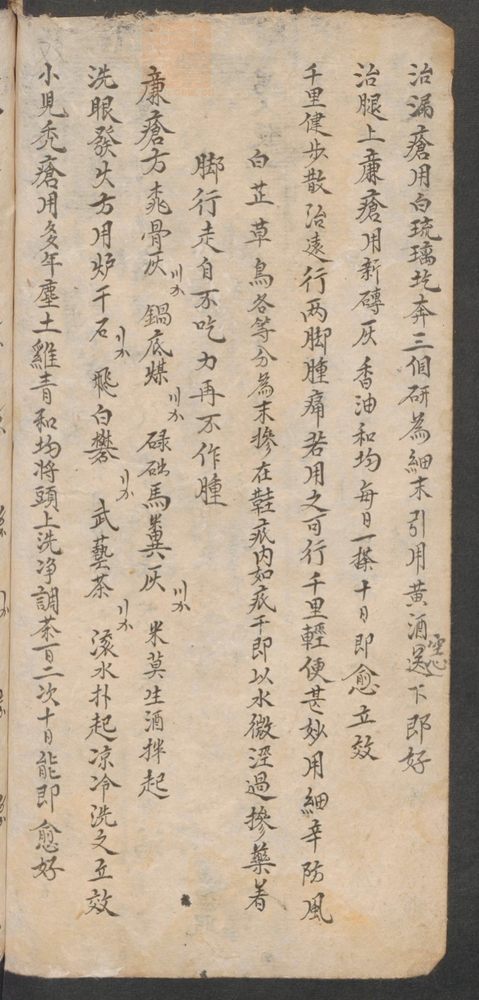 治漏瘡用白琉璃圪奔三個研為細末引用黃酒空心送下即好
治腿上亷瘡用新磚灰香油和均每日一搽十日即愈立效
千里健步散治遠行两脚腫痛若用之可行千里輕便甚妙用細辛防風
白芷草烏各等分為末摻在鞋底内如底干即以水微溼過摻藥着
脚行走自不吃力再不作腫
亷瘡方 骨灰 鍋底煤 碌砫馬糞灰 米莫生酒拌起
洗眼發火方用炉干石 飛白礬 武藝茶 滚水扑起凉冷洗之立效
小児秃瘡用多年塵土雞青和均將頭上洗净調茶一百二次十日能即愈好